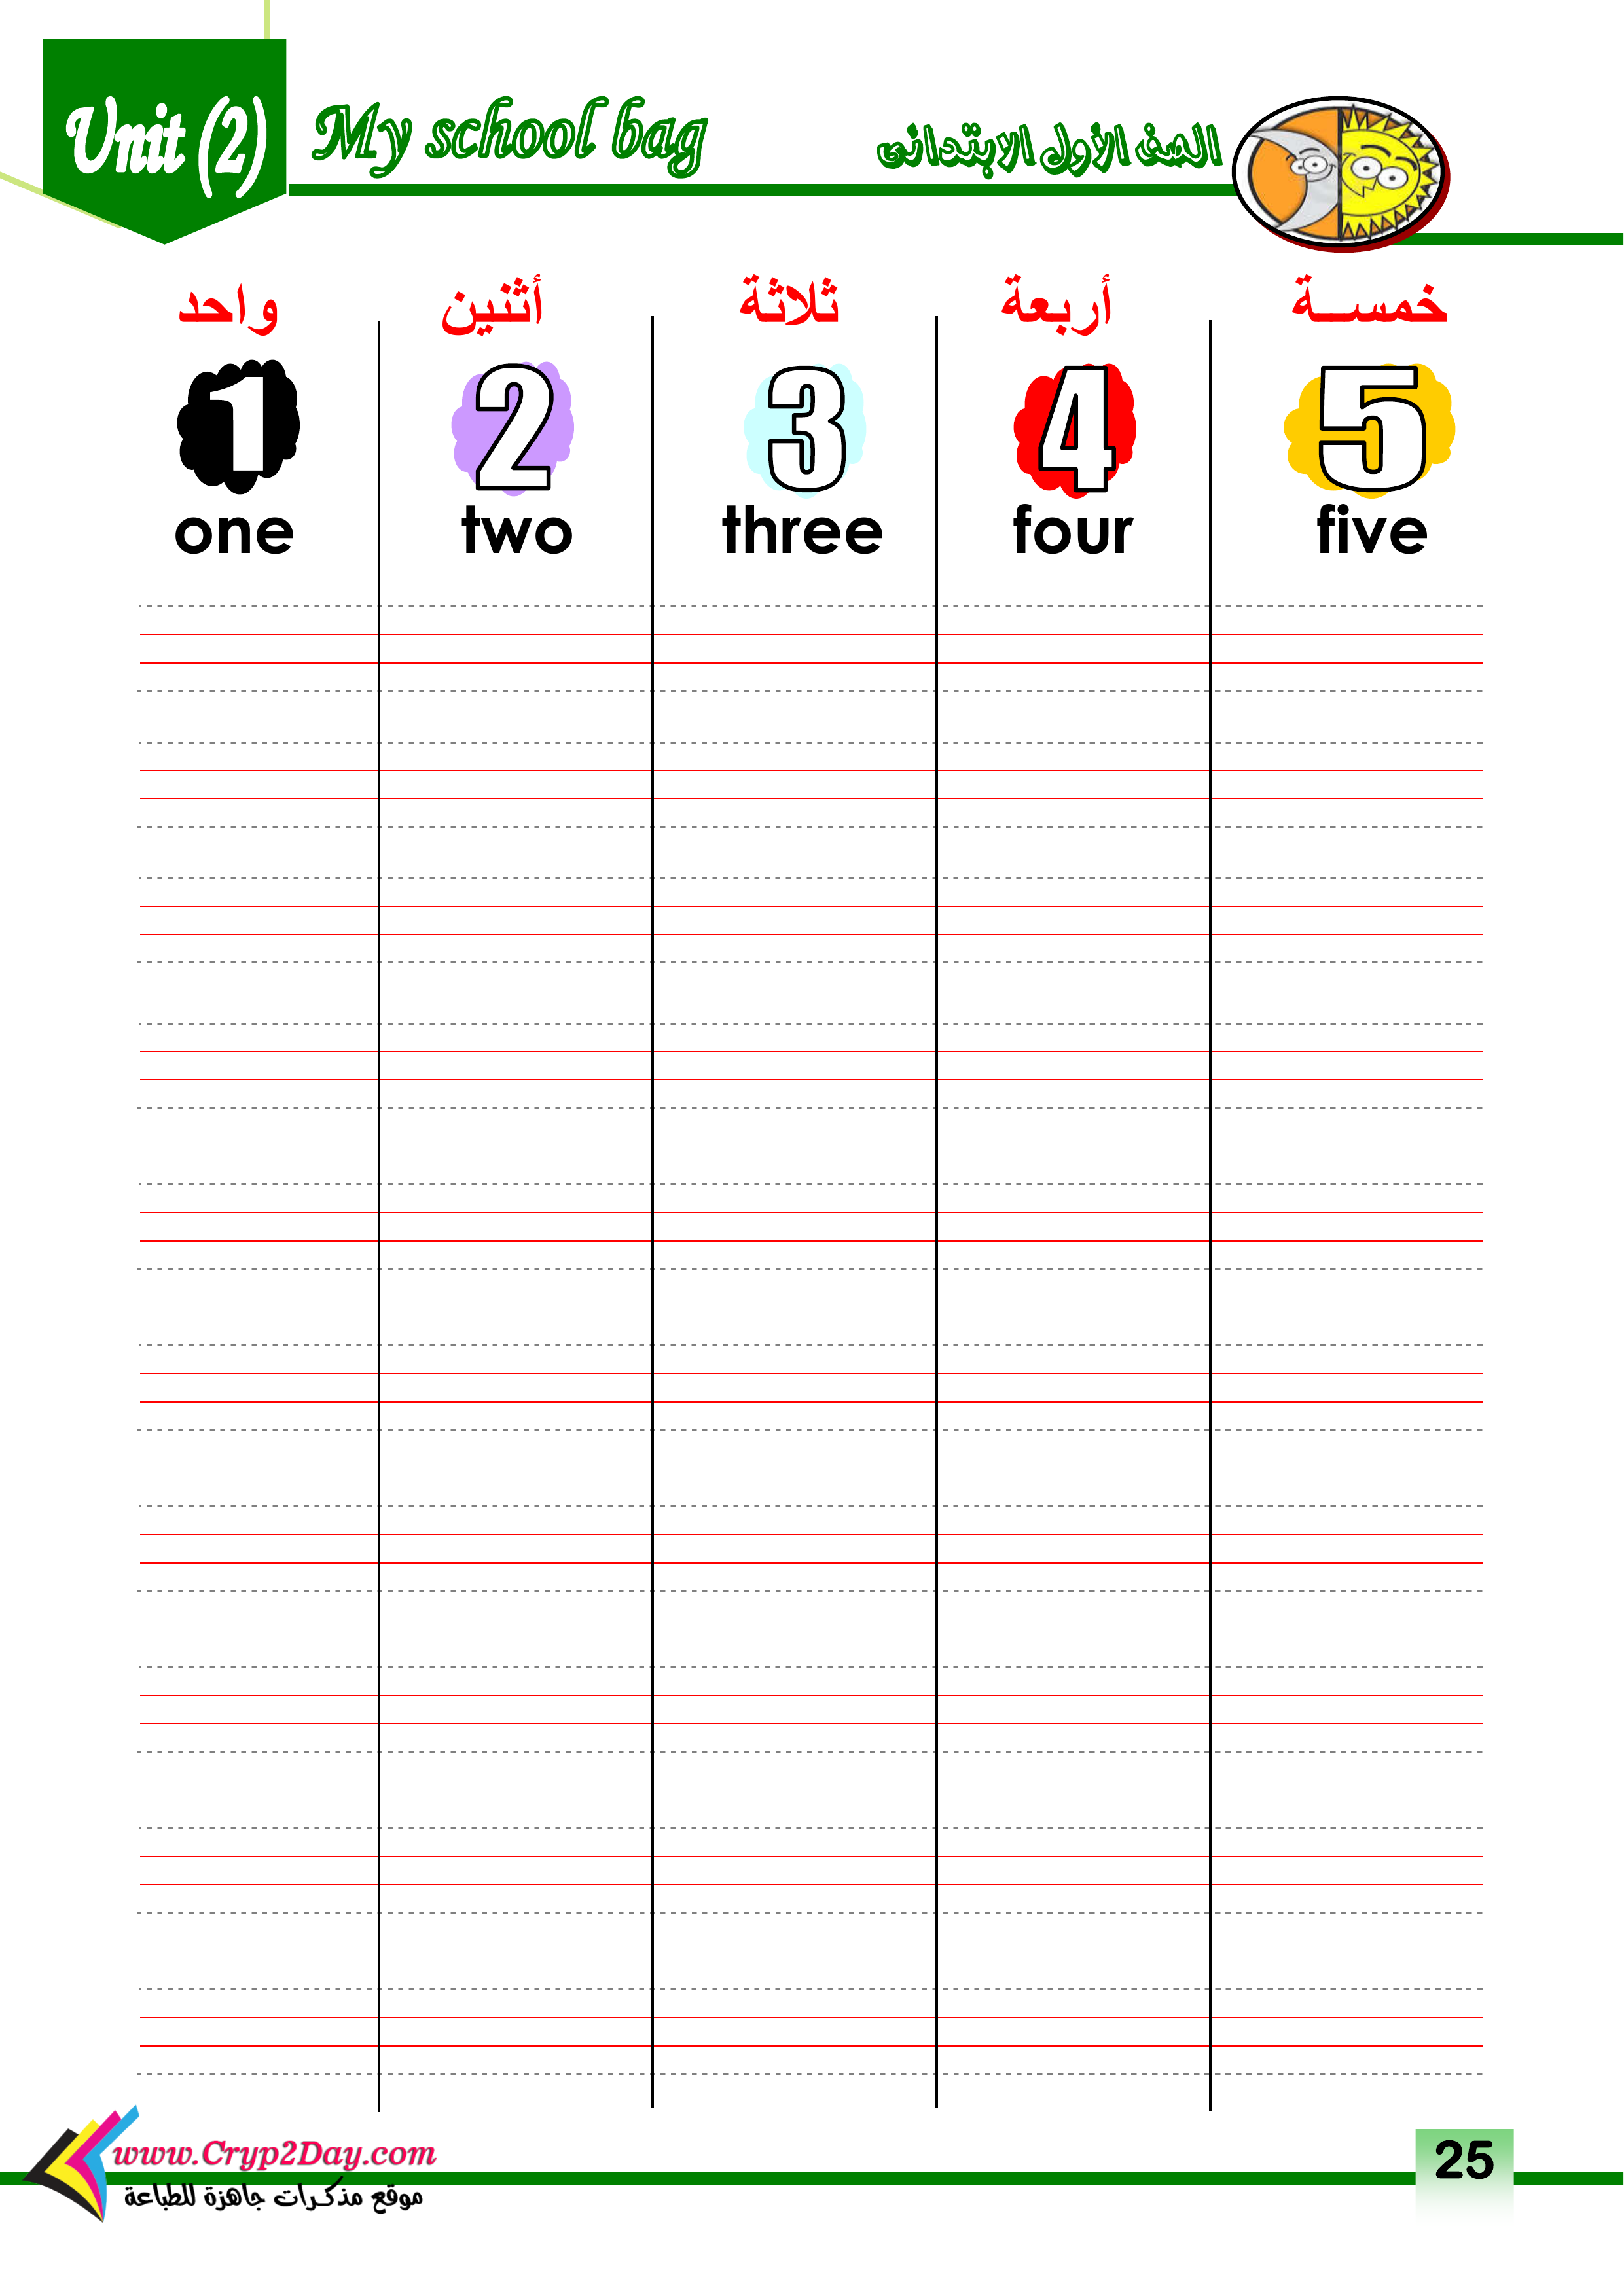 Unit (2) My school bag الصف الأول الابتدائى
واحد أثنين ثلاثة أربعة خمســة
1 2 3 4 5
one two three four five
www.Cryp2Day.com
موقع مذكرات جاهزة للطباعة
25